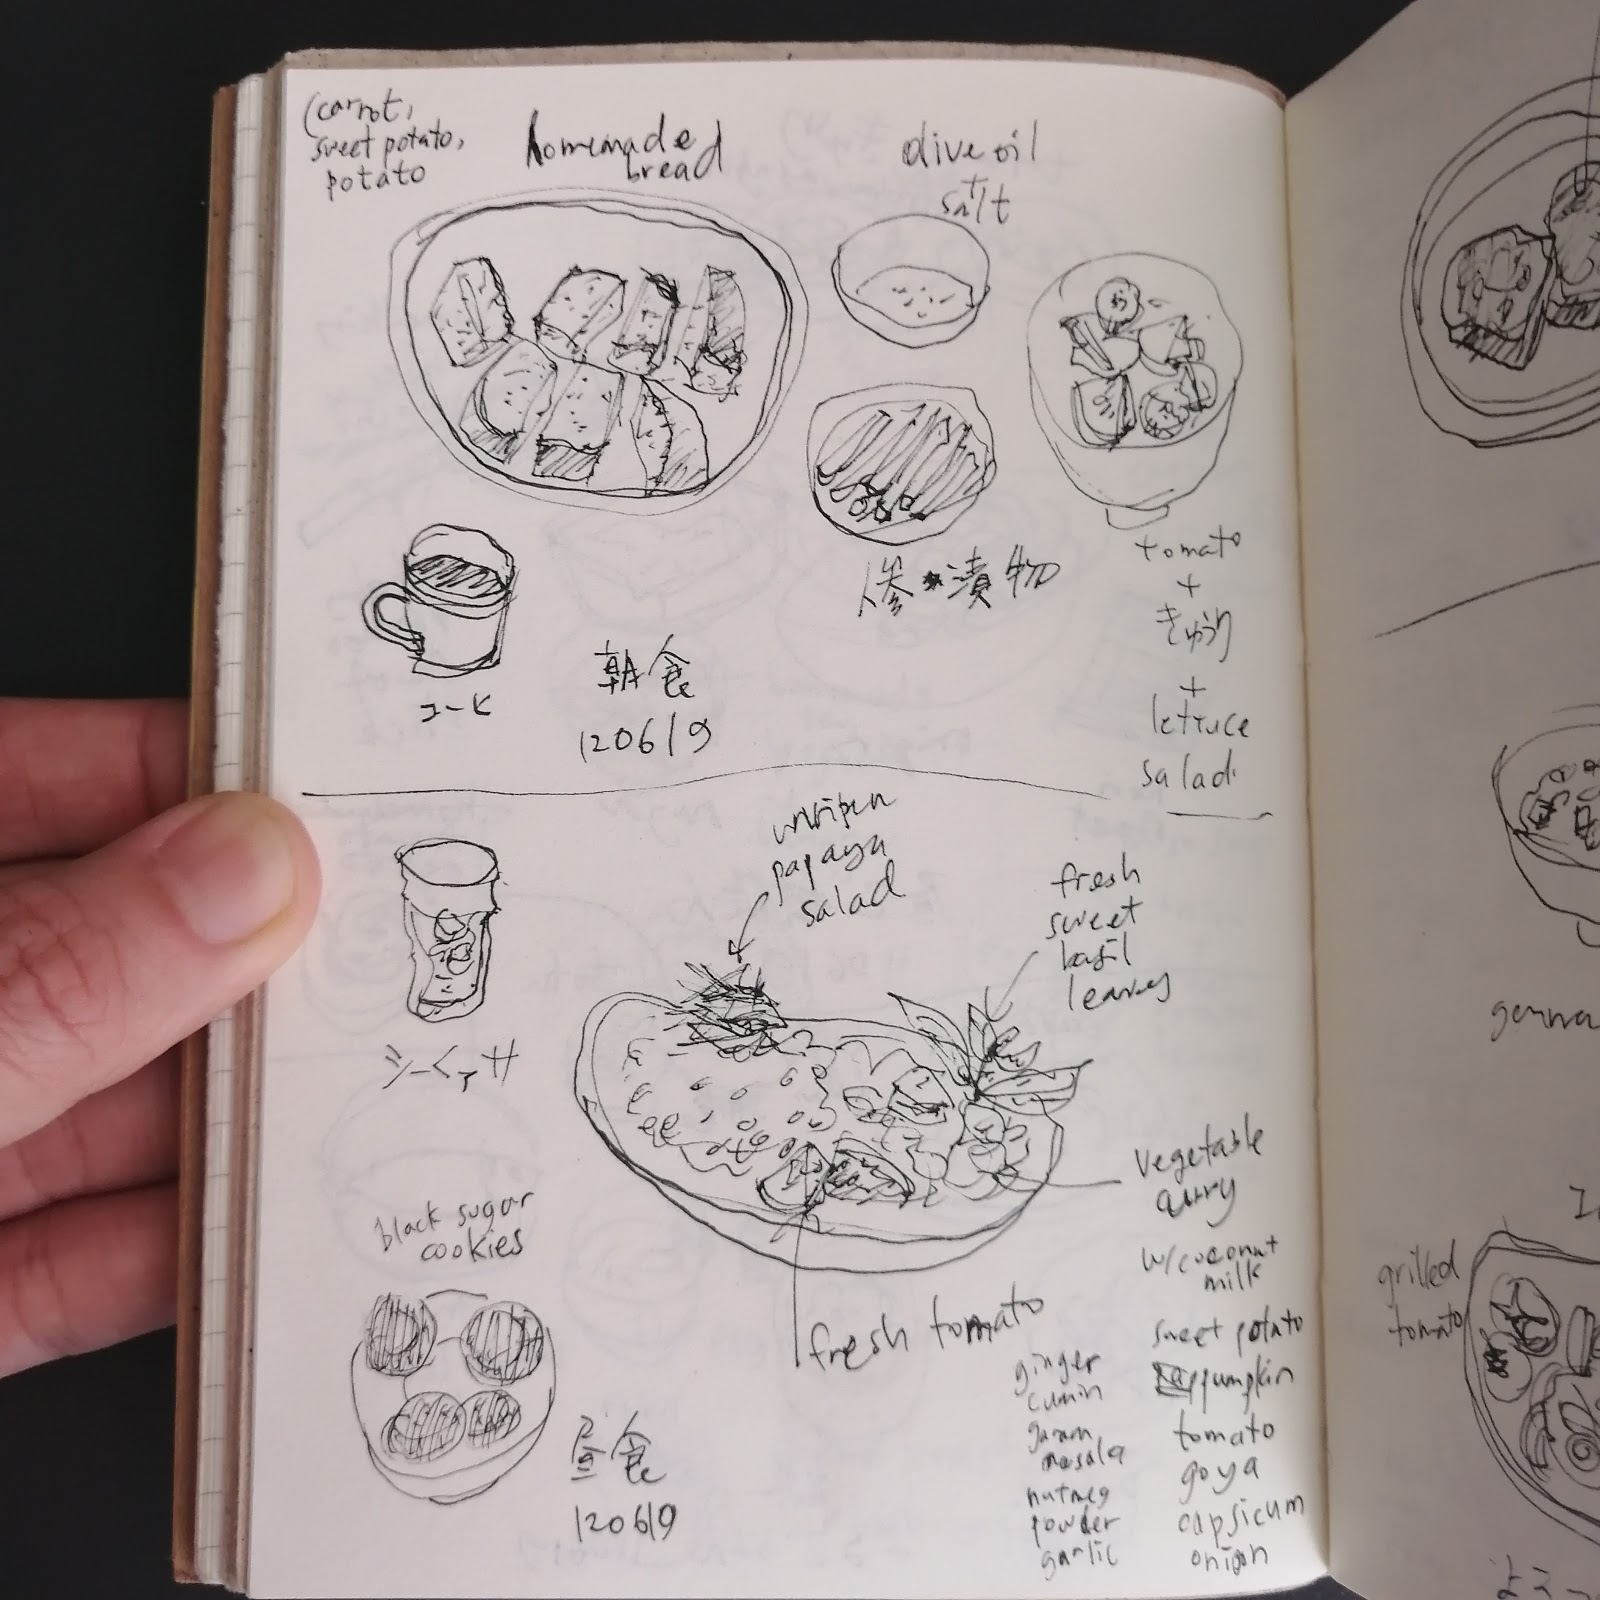 (carrot,
sweet potato,
potato
homemade
bread
olive oil
+
salt
漬物
tomato
+
きゅうり
+
lettuce
salad
コーヒ
朝食
120619
unripen
papaya
salad
fresh
sweet
basil
leaves
シークァサ
vegetable
curry
w/coconut
milk
black sugar
cookies
fresh tomato
sweet potato
pumpkin
tomato
goya
capsicum
onion
ginger
cumin
garam
masala
nutmeg
powder
garlic
昼食
120619
grilled
tomato